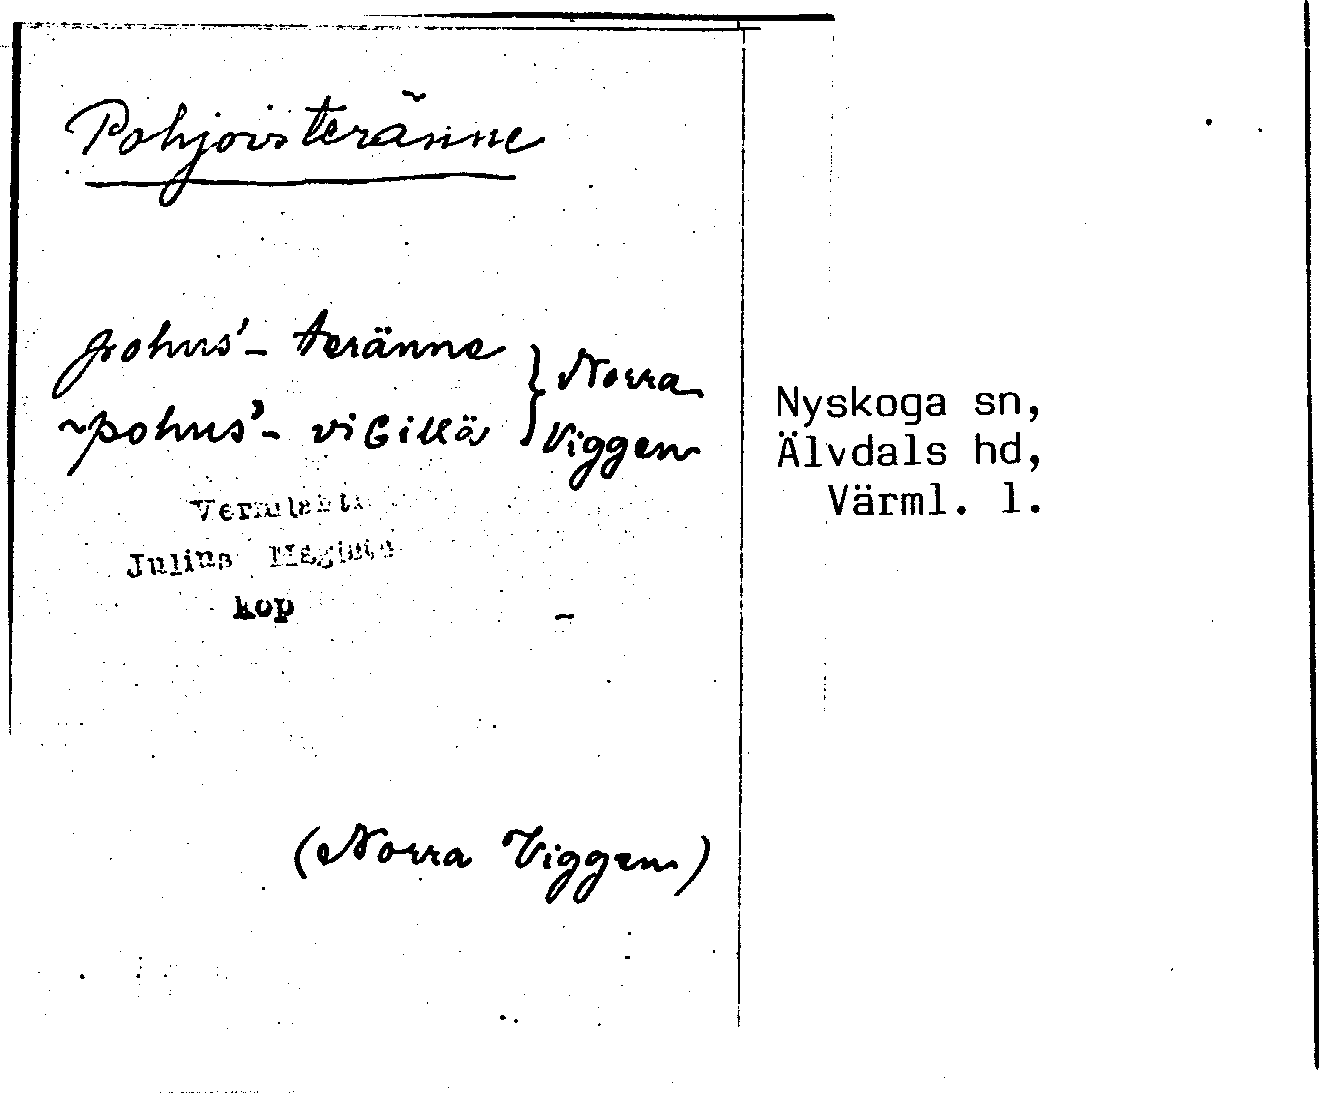 Pohjoisteränne
pohus'- teränne } Norra
~pohus'- viGillä } Viggen
Vermlanti
Julius Mägiste
kop
(Norra Viggen)
Nyskoga sn,
Älvdals hd,
Värml. l.